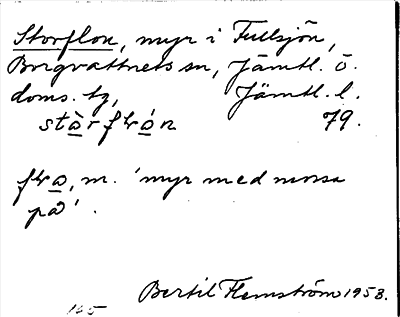 Storflon, myr i Fullsjön,
Borgvattnets sn, Jämtl. ö.
doms. tg, Jämtl. l.
79.
myr med mossa
på'.
Bertil Flemström 1958.
165